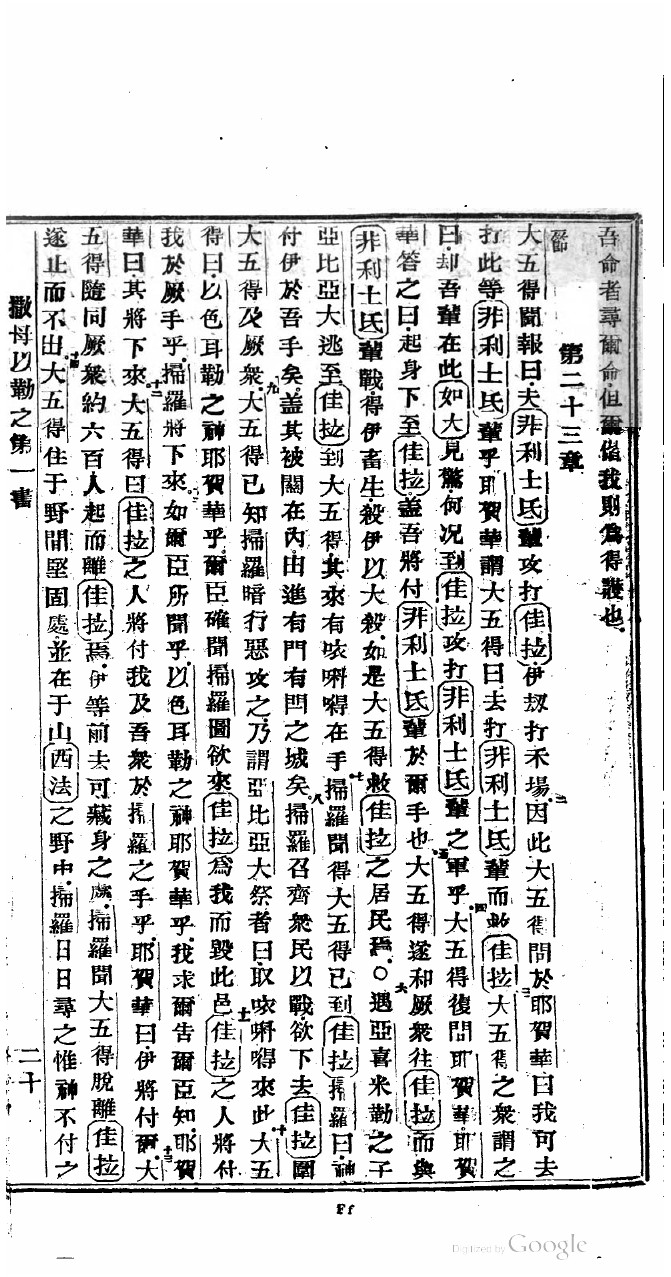 吾命者尋爾命但爾偕我則為得護也
第二十三章
大五得聞報曰夫非利士氏輩攻打佳拉伊刼打禾場因此大五得問於耶賀華曰我可去
打此等非利士氏輩乎耶賀華謂大五得曰去打非利士氏輩而救佳拉大五得之衆謂之
曰却吾輩在此如大見驚何况到佳拉攻打非利士氏輩之軍乎大五得復問耶賀華耶賀
華答之曰起身下至佳拉盖吾將付非利士氏輩於爾手也大五得遂和厥衆往佳拉而與
非利士氏輩戰得伊畜生殺伊以大殺如是大五得救佳拉之居民焉○遇亞喜米勒之子
亞比亞大逃至佳拉到大五得其來有咴㖿嘚在手掃羅聞得大五得已到佳拉掃羅曰神
付伊於吾手矣盖其被關在內由進有門有閂之城矣掃羅召齊衆民以戰欲下去佳拉圍
大五得及厥衆大五得已知掃羅暗行惡攻之乃謂亞比亞大祭者曰取咴㖿嘚來此大五
得曰以色耳勒之神耶賀華乎爾臣確聞掃羅圖欲來佳拉為我而毀此邑佳拉之人將付
我於厥手乎掃羅將下來如爾臣所聞乎以色耳勒之神耶賀華乎我求爾告爾臣知耶賀
華曰其將下來大五得曰佳拉之人將付我及吾衆於掃羅之手乎耶賀華曰伊將付爾大
五得隨同厥衆約六百人起而離佳拉焉伊等前去可藏身之處掃羅聞大五得脫離佳拉
遂止而不出大五得住于野間堅固處並在于山西法之野中掃羅日日尋之惟神不付之
撒母以勒之第一書
二十
Ff
Digitized by Google